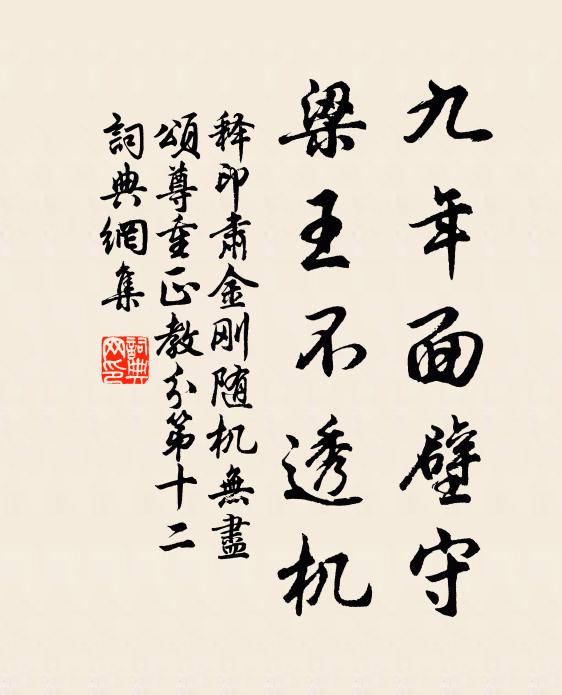 九年面壁守
梁王不透机
释印肃金刚随机無盡
頌尊重正教分第十二
詞典網集
詞典網印